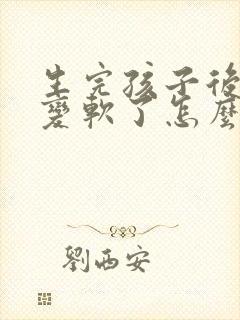 生完孩子後
變軟了怎麼
劉西安